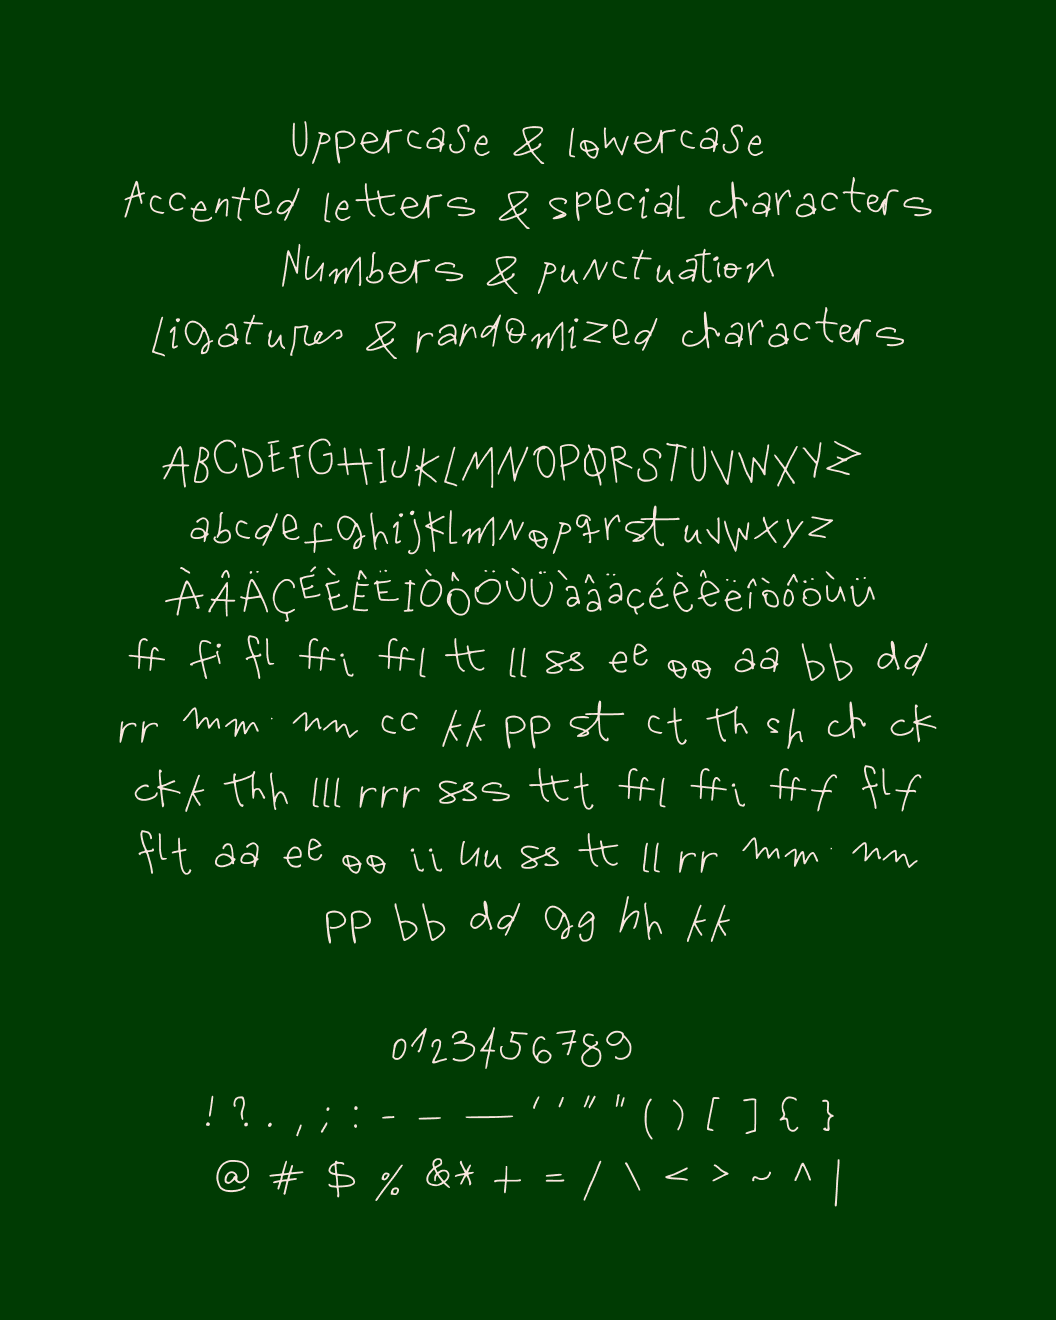 Uppercase & lowercase
Accented letters & special characters
Numbers & punctuation
Ligatures & randomized characters
ABCDEFGHIJKLMNOPQRSTUVWXYZ
abcdefghijklmnopqrstuvwxyz
ÀÂÄÇÉÈÊËIÒÔÖÙÜàâäçéèêëîòôöùü
ff fi fl ffi ffl tt ll ss ee oo aa bb dd
rr mm nn cc kk pp st ct th sh ch ck
ckk thh lll rrr sss ttt ffl ffi fff flf
flt aa ee oo ii uu ss tt ll rr mm nn
pp bb dd gg hh kk
0123456789
! ? . , ; : - – — ' ' " " ( ) [ ] { }
@ # $ % &* + = / \ < > ~ ^ |